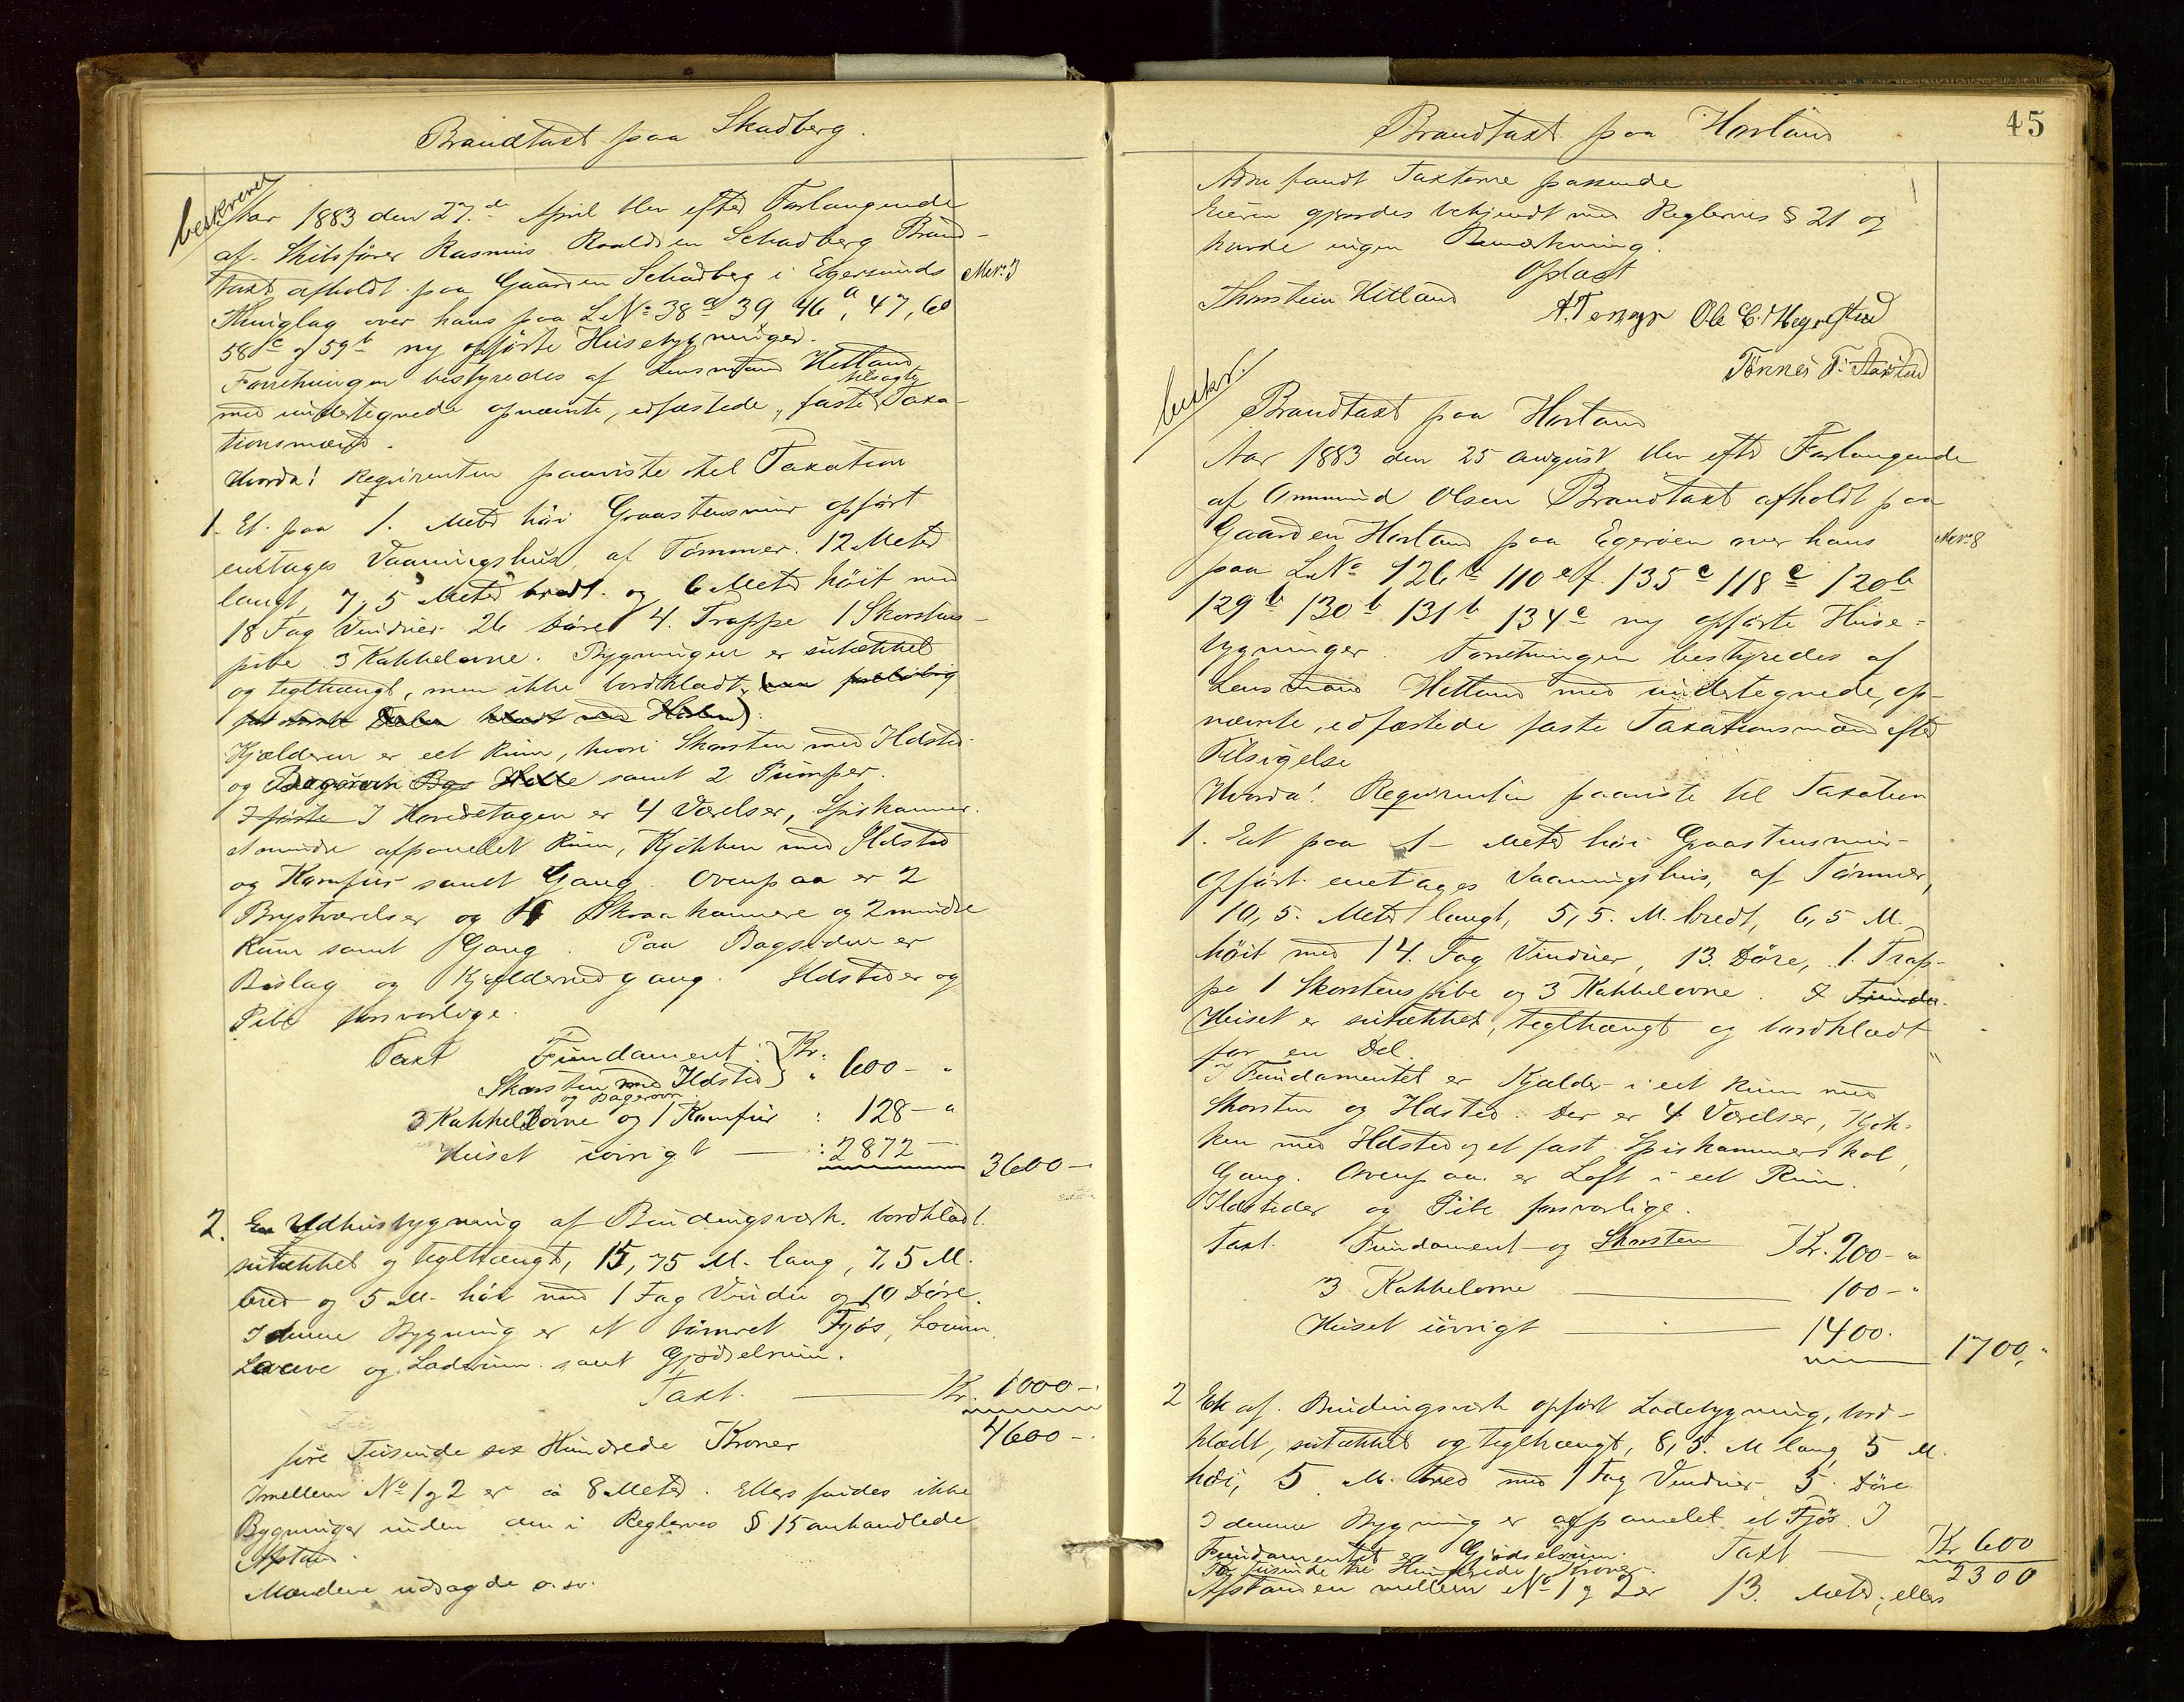 Brandtaxt paa Skadberg.
beskrevet
Aar 1883 den 27.de April blev efter Forlangende
af Skibsfører Rasmus Roaldsen Schadberg Brand-
taxt afholdt paa Gaarden Schadberg i Egersunds
Mvn: 3
Thinglag over hans paa L.No 38a 39, 46a, 47, 60
58c og 59b ny opførte Husebygninger.
Forretningen bestyredes af Lensmand Hetland
tilsagte
med undertegnede opnævnte, edfæstede, faste Taxa-
tionsmænd.
Hvorda! Reqvirenten paaviste til Taxation
1. Et paa 1. Meter høi Graastensmur opført
enetages Vaaningshus, af Tømmer. 12 Meter
langt, 7,5 Meter bredt og 6 Meter høit med
18 Fag Vinduer 26 Døre 4. Trappe 1 Skorstens-
pibe 3 Kakkelovne. Bygningen er sutækket
og teglhængt, men ikke bordklædt,
Kjælderen er eet Rum, hvori Skorsten med Ildsted
og Bagerovn samt 2 Pumper.
I første I Hovedetagen er 4 Værelser, Spiskammer
et mindre afpanelet Rum, Kjøkken med Ildsted
og Komfur samt Gang. Ovenpaa er 2
Brystværelser og 4 Skraakamere og 2 mindre
Rum samt Gang. Paa Bagsiden er
Bislag og Kjældernedgang. Ildsteder og
Pibe forsvarlige.
Taxt Fundament: } Kr.
Skorsten med Ildsted } " 600 - "
og Bagerovn
3 Kakkelovne og 1 Komfur : 128 - "
Huset iøvrigt — : 2872 —
3600 -
2. En Udhusbygning af Bindingsværk. bordklædt.
sutækket og teglhængt, 15,75 M. lang, 7,5 M.
bred og 5 M. høi med 1 Fag Vindu og 10 Døre.
I denne Bygning er et tømret Fjøs,
Laave og Laderum samt Gjødselrum.
Taxt. — Kr. 1000 -
4600 -
fire Tusinde sex Hundrede Kroner
Imellem No 1 og 2 er a 8 Meter. Ellers findes ikke
Bygninger inden den i Reglernes § 15 omhandlede
Afstand.
Mændene udsagde o. sv.
Brandtaxt paa Hovland
45
Adne fandt Taxterne passende
Eieren gjordes bekjendt med Reglernes § 21 og
havde ingen Bemærkning.
Oplæst
Thorstein Hetland A. Tengs Ole C. Hegrestad
Tønnes T. Aarstad
beskr.
Brandtaxt paa Hovland
Aar 1883 den 25 august blev efter Forlangende
af Ommund Olsen Brandtaxt afholdt paa
Gaarden Hovland paa Egerøen over hans
Mvn: 8
paa L.No 126b 110 e f. 135c 118c 120b
129b 130b 131b 134c ny opførte Huse-
bygninger. Forretningen bestyredes af
Lensmand Hetland med undertegnede, op-
nævnte, edfæstede faste Taxationsmænd efter
Tilsigelse
Hvorda! Reqvirenten paaviste til Taxation
1. Eet paa 1 - Meter høi Graastensmur
opført enetages Vaaningshus, af Tømmer,
10,5. Meter langt, 5,5. M. bredt, 6,5 M.
høit med 14. Fag Vinduer, 13. Døre, 1. Trap-
pe 1 Skorstenspibe og 3 Kakkelovne. I Funda-
Huset er sutækket, teglhængt og bordklædt
for en Del.
I Fundamentet er Kjælder i eet Rum med
Skorsten og Ildsted. Der er 4 Værelser, Kjøk-
ken med Ildsted og et fast Spiskammerskab,
Gang. Ovenpaa er Loft i eet Rum.
Ildsteder og Pibe forsvarlige.
Taxt. Fundament og Skorsten Kr. 200 - "
3 Kakkelovne — 100 - "
Huset iøvrigt — 1400.
1700, "
2 En af Bindingsværk opført Ladebygning, bord-
klædt, sutækket og teglhængt, 8,5. M lang, 5 M.
høi, 5 M. bred med 1 Fag Vinduer 5 Døre
I denne Bygning er afpanelet et Fjøs. I
Fundamentet er Gjødselrum. Taxt — Kr 600
To tusinde tre Hundrede Kroner. 2300
Afstanden mellem No 1 og 2 er 13. Meter, ellers